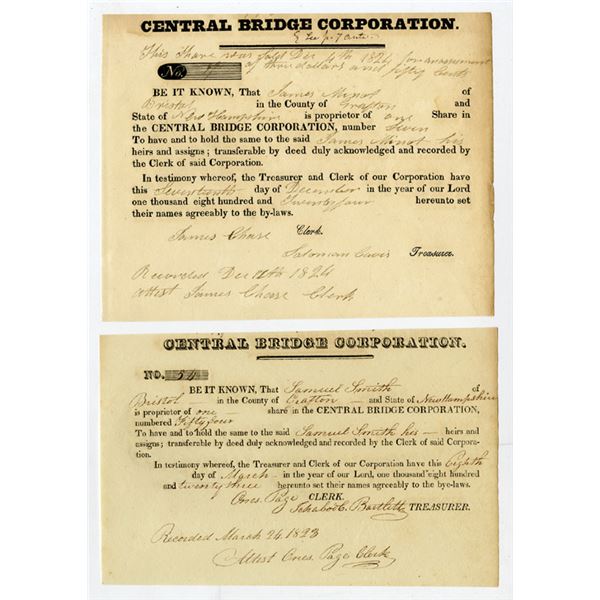 CENTRAL BRIDGE CORPORATION.
This Share was sold Dec 4th 1824 for an assessment
No. 7 of three dollars and fifty cents
BE IT KNOWN, That James Minot of
Bristol in the County of Grafton and
State of New Hampshire is proprietor of one Share in
the CENTRAL BRIDGE CORPORATION, number Seven
To have and to hold the same to the said James Minot his
heirs and assigns; transferable by deed duly acknowledged and recorded by
the Clerk of said Corporation.
In testimony whereof, the Treasurer and Clerk of our Corporation have
this Seventeenth day of December in the year of our Lord
one thousand eight hundred and Twenty four hereunto set
their names agreeably to the by-laws.
James Chase Clerk.
Soloman Cavis Treasurer.
Recorded Dec 1824
Attest James Chase Clerk
CENTRAL BRIDGE CORPORATION.
NO. 54
BE IT KNOWN, That Samuel Smith of
Bristol in the County of Grafton and State of New Hampshire
is proprietor of one share in the CENTRAL BRIDGE CORPORATION,
numbered Fifty four
To have and to hold the same to the said Samuel Smith his heirs and
assigns; transferable by deed duly acknowledged and recorded by the Clerk of said Corpora-
tion.
In testimony whereof, the Treasurer and Clerk of our Corporation have this Eighth
day of March in the year of our Lord, one thousand eight hundred
and twenty three hereunto set their names agreeably to the bye-laws.
Page CLERK.
Ichabod C. Bartlett TREASURER.
Recorded March 24, 1823
Attest Page Clerk